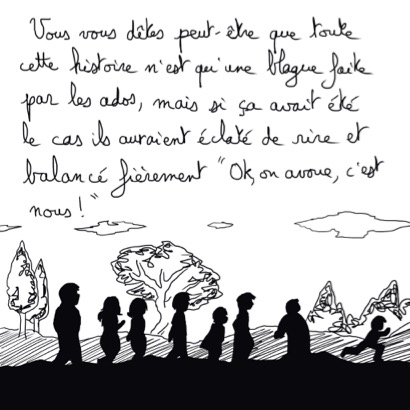 Vous vous dêtes peut-être que toute
cette histoire n'est qu'une blague faite
par les ados, mais si ça avait été
le cas ils auraient éclaté de rire et
balancé fièrement "Ok, on avoue, c'est
nous!"